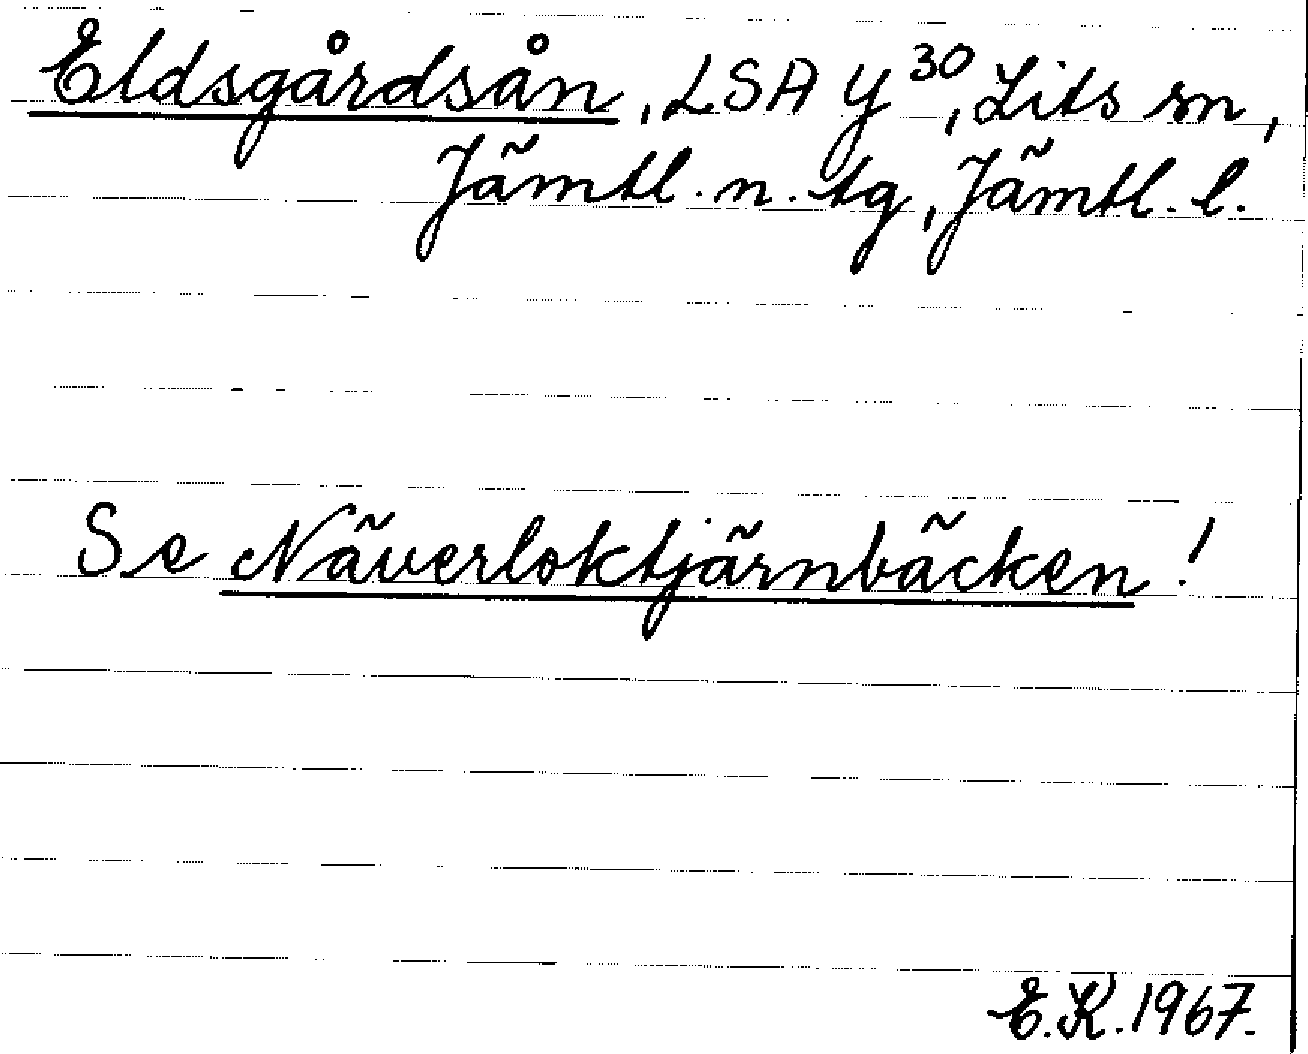 Eldsgårdsån, LSA Y 30, Lits sn,
Jämtl. n. tg, Jämtl. l.
Se Näverloktjärnbäcken!
E.K. 1967.